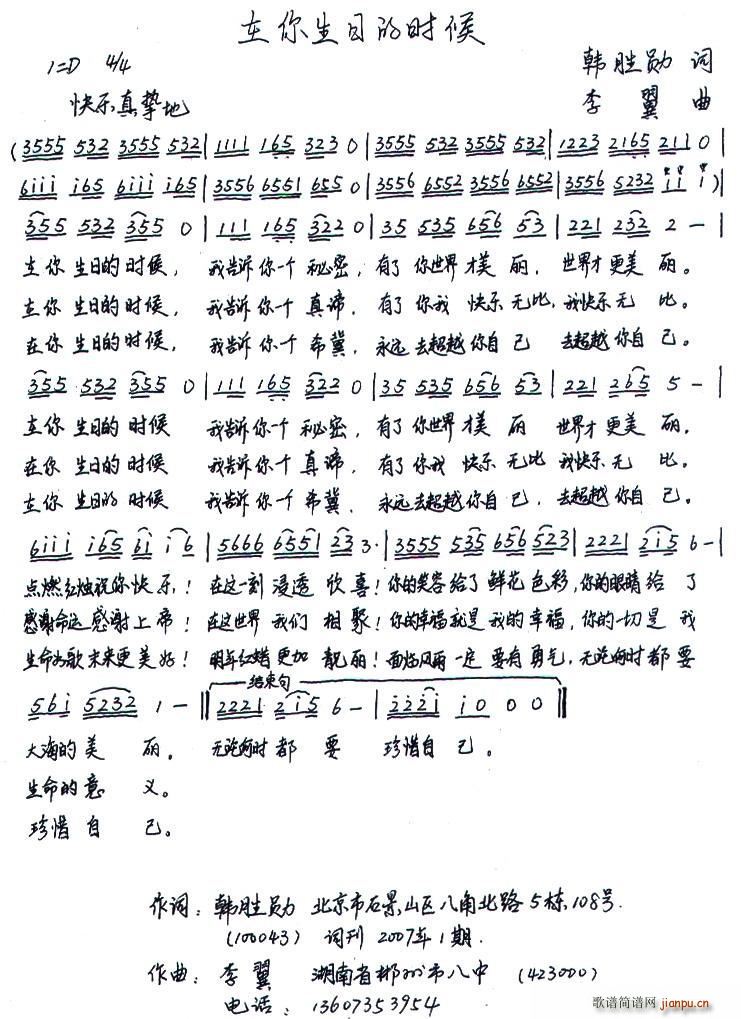 在你生日的时候
1=D 4/4
韩胜勋 词
快乐真挚地
李翼 曲
(3555 532 3555 532 | 1111 165 323 0 | 3555 532 3555 532 | 1223 2165 211 0
6iii i65 6iii i65 | 3556 6551 655 0 | 3556 6552 3556 6552 | 3556 5232 i i i )
355 532 355 0 | 111 165 322 0 | 35 535 656 53 | 221 232 2 — |
在你 生日的 时候, 我告诉 你一个 秘密, 有了 你世界 才美 丽, 世界才 更美 丽。
在你 生日的 时候, 我告诉 你一个 真谛, 有了 你我 快乐 无比, 我快乐 无 比。
在你 生日的 时候, 我告诉 你一个 希冀, 永远 去超越 你自 己 去超越 你自 己。
355 532 355 0 | 111 165 322 0 | 35 535 656 53 | 221 265 5 — |
在你 生日的 时候 我告诉 你一个 秘密, 有了 你世界 才美 丽 世界才 更美 丽。
在你 生日的 时候 我告诉 你一个 真谛, 有了 你我 快乐 无比 我快乐 无 比。
在你 生日的 时候 我告诉 你一个 希冀, 永远 去超越 你自 己, 去超越 你自 己。
6iii i65 6i i 6 | 5666 6551 23 3· | 3555 535 656 523 | 2221 2i5 6 — |
点燃红烛祝你 快乐! 在这一刻 浸透 欣喜! 你的笑容 给了 鲜花 色彩, 你的眼睛 给 了
感谢命运 感谢 上帝! 在这世界 我们 相聚! 你的幸福 就是 我的 幸福, 你的一切 是 我
生命为歌 未来更 美好! 明年红蜡 更加 靓丽! 面临风雨 一定 要有 勇气, 无论何时 都 要
结束句
56i 5232 1 — || 2221 2i5 6 — | 222i i 0 0 0 ||
大海的 美 丽。 无论何时 都 要 珍惜自 己。
生命的 意 义。
珍惜 自 己。
作词: 韩胜勋 北京市石景山区八角北路5栋108号.
(100043) 词刊 2007年1期.
作曲: 李翼 湖南省郴州市八中 (423000)
电话: 13607353954
歌谱简谱网 jianpu.cn